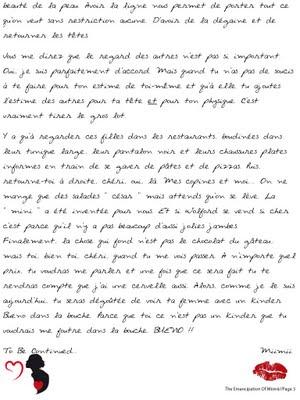 beauté de la peau. Avoir la ligne nous permet de porter tout ce
qu'on veut sans restriction aucune. D'avoir de la dégaine et de
retourner les têtes.
Vous me direz que le regard des autres n'est pas si important.
Oui, je suis parfaitement d'accord. Mais quand tu n'as pas de soucis
à te faire pour ton estime de toi-même et qu'à elle tu ajoutes
l'estime des autres pour ta tête et pour ton physique. C'est
vraiment tirer le gros lot.
Y a qu'à regarder ces filles dans les restaurants, boudinées dans
leur tunique large, leur pantalon noir et leurs chaussures plates
informes en train de se gaver de pâtes et de pizzas. Puis,
retourne-toi à droite, chéri, oui, là. Mes copines et moi... On ne
mange que des salades " césar " mais attends qu'on se lève. La
" mini " a été inventée pour nous. Et si Wolford se vend si cher
c'est parce qu'il n'y a pas beaucoup d'aussi jolies jambes.
Finalement, la chose qui fond n'est pas le chocolat du gâteau,
mais toi, bien toi, chéri, quand tu me vois passer. A n'importe quel
prix, tu voudras me parler et une fois que ce sera fait tu te
rendras compte que j'ai une cervelle aussi. Alors, comme je le suis
aujourd'hui, tu seras dégoûtée de voir ta femme avec un Kinder
Bueno dans la bouche. Parce que toi ce n'est pas un kinder que tu
voudrais me foutre dans la bouche. BUENO !!
To Be Continued... Miimii
The Emancipation Of Miimii|Page 3